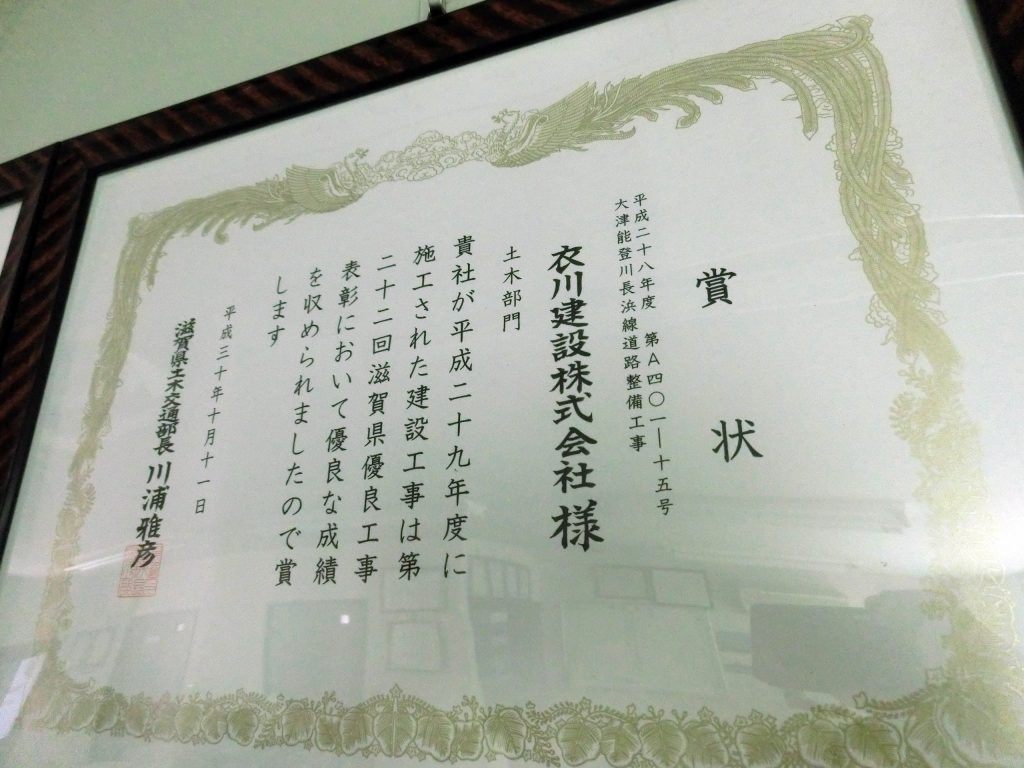 賞状
平成二十八年度 第A四〇一―十五号
大津能登川長浜線道路整備工事
衣川建設株式会社様
土木部門
貴社が平成二十九年度に
施工された建設工事は第
二十二回滋賀県優良工事
表彰において優良な成績
を収められましたので賞
します
平成三十年十月十一日
滋賀県土木交通部長 川浦雅彦